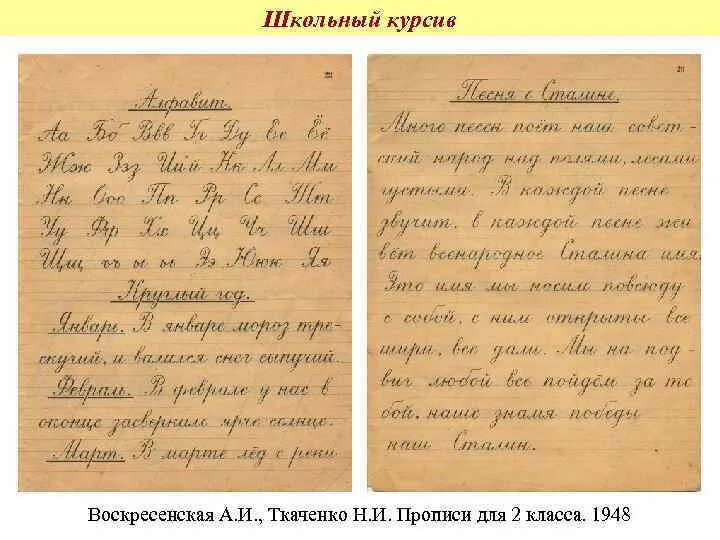 Школьный курсив
22
Алфавит.
Аа Бб Ввв Гг Дд Ее Ёё
Жж Ззз Ииӣ Кк Лл Мм
Нн Ооо Пп Рр Сс Тт
Уу Фф Хх Цц Чч Шш
Щщ ъъ ы ьь Ээ Юю Яя
Круглый год.
Январь. В январе мороз тре-
скучий, и валился снег сыпучий.
Февраль. В феврале у нас в
оконце засверкало ярче солнце.
Март. В марте лёд с реки
Песня о Сталине.
Много песен поёт наш совет-
ский народ над полями, лесами
густыми. В каждой песне
звучит, в каждой песне жи
вёт всенародное Сталина имя.
Это имя мы носим повсюду
с собой, с ним открыты все
шири, все дали. Мы на под-
виг любой все пойдём за то
бой, наше знамя победы
наш Сталин.
Воскресенская А.И., Ткаченко Н.И. Прописи для 2 класса. 1948